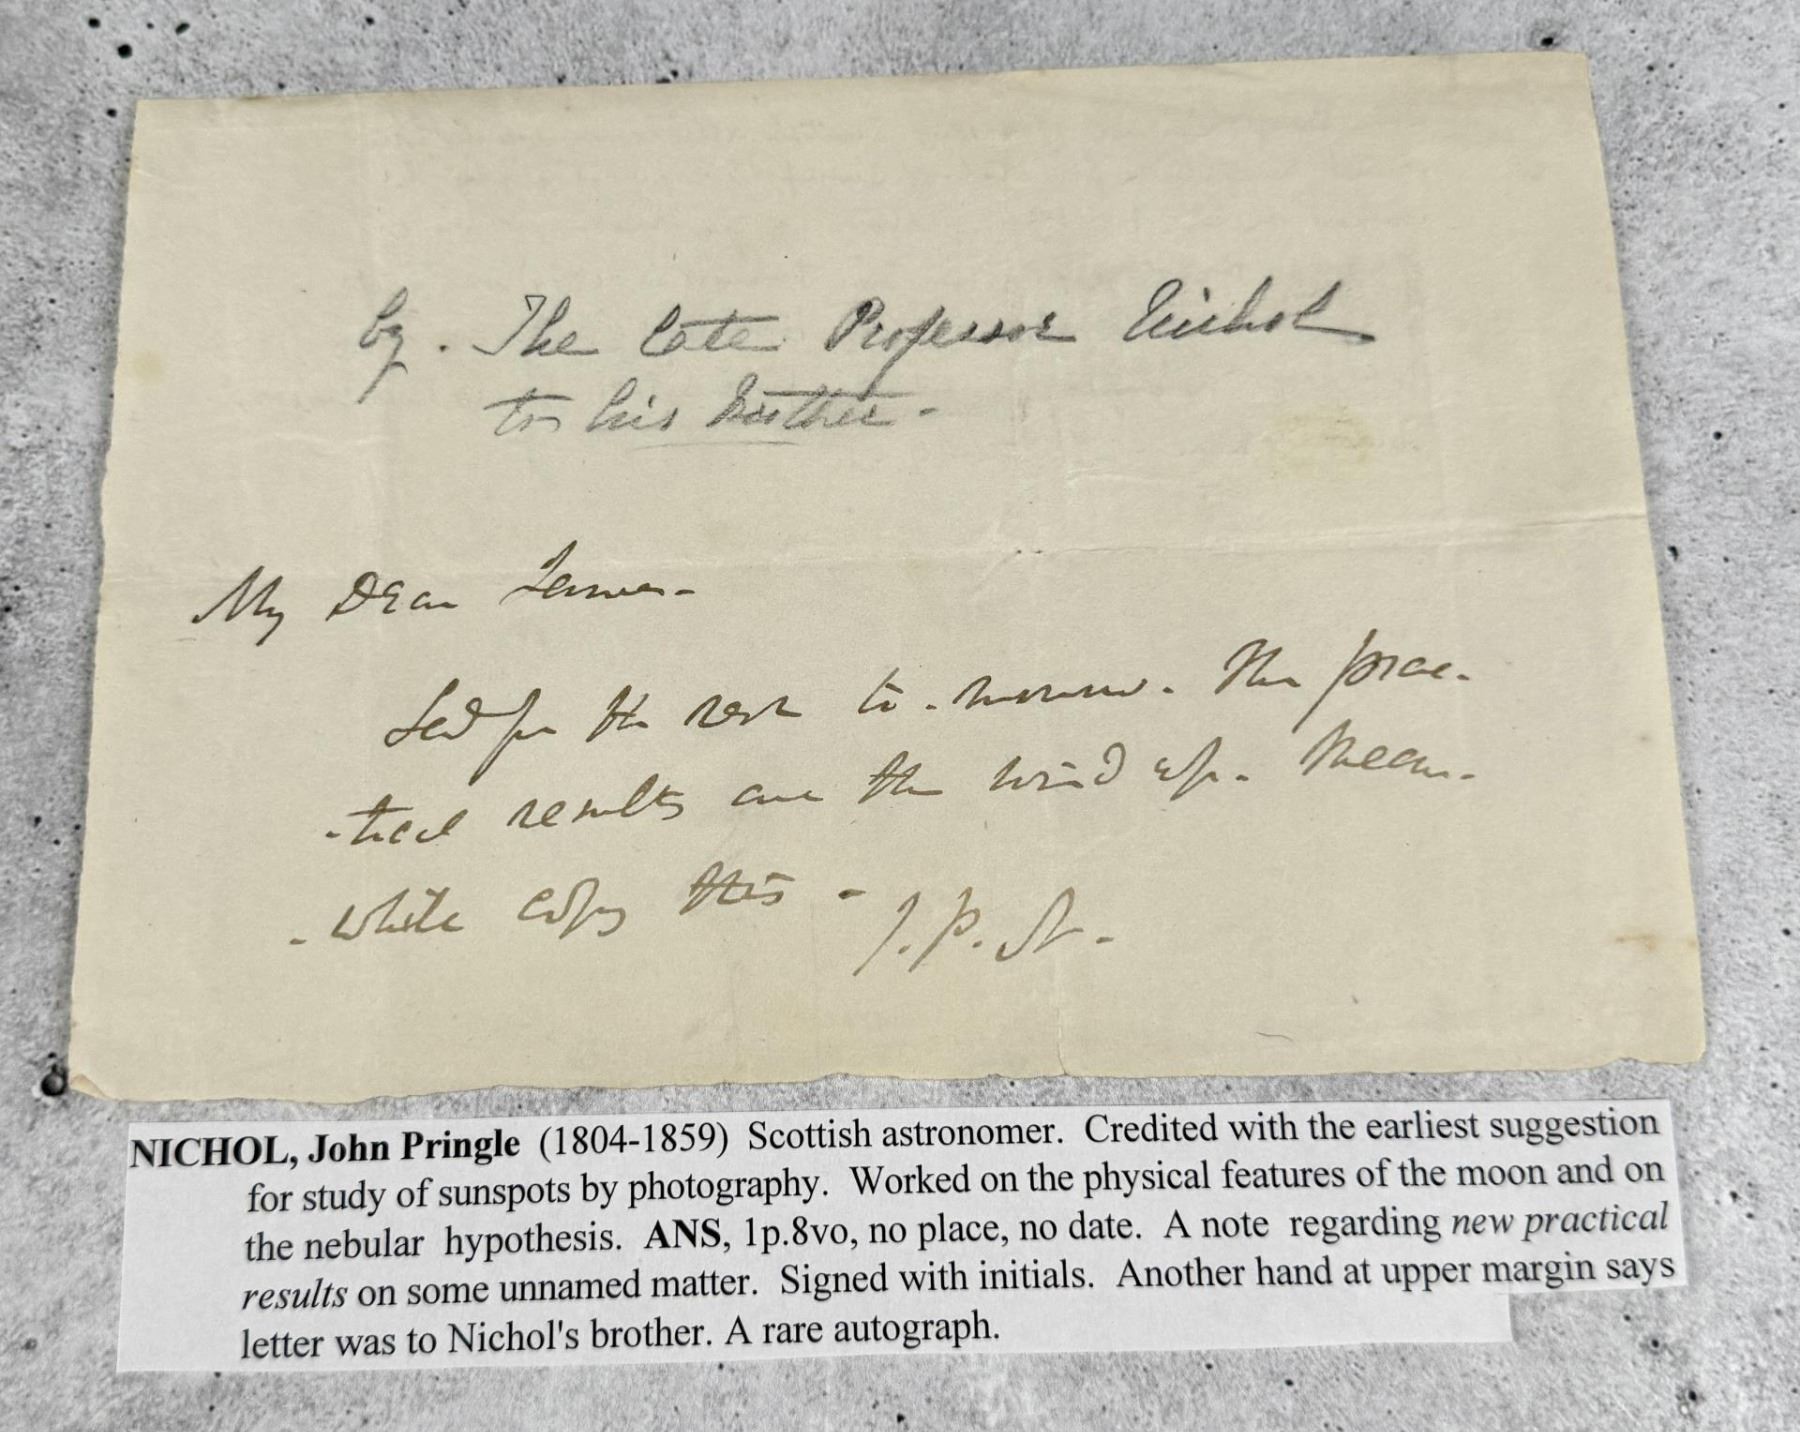 by. The late Professor Nichol
to his brother -
My Dear James -
Send for the rest to-morrow. The prac-
-tical results are the wind up. Mean-
-while copy this - J. P. N. -
NICHOL, John Pringle (1804-1859) Scottish astronomer. Credited with the earliest suggestion
for study of sunspots by photography. Worked on the physical features of the moon and on
the nebular hypothesis. ANS, 1p.8vo, no place, no date. A note regarding new practical
results on some unnamed matter. Signed with initials. Another hand at upper margin says
letter was to Nichol's brother. A rare autograph.